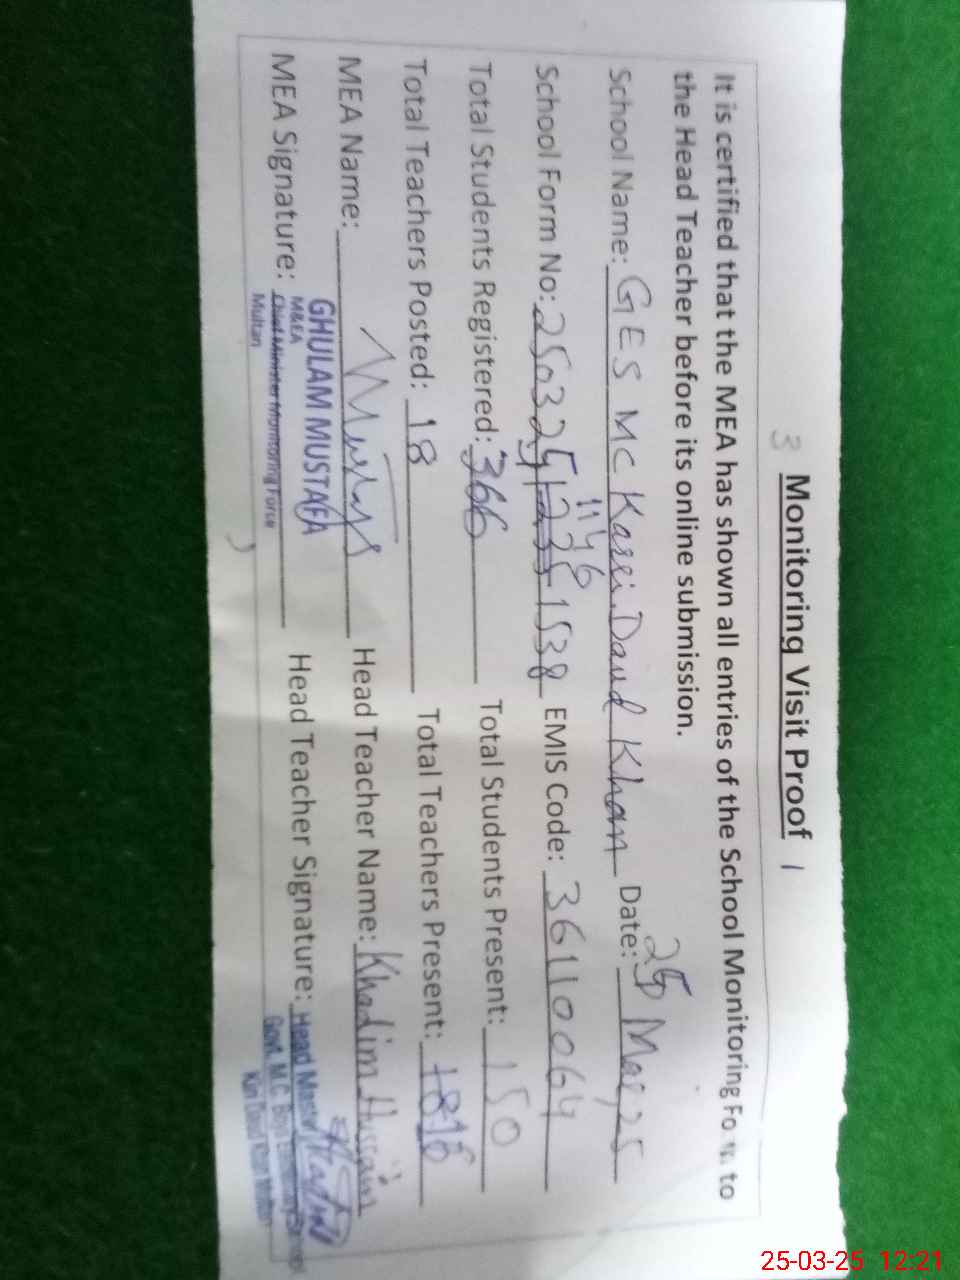 3 Monitoring Visit Proof 1
It is certified that the MEA has shown all entries of the School Monitoring Fo to
the Head Teacher before its online submission.
School Name: GES MC Karri Daud Khan Date: 25 Mar, 25
School Form No: 250325 1146 1538 EMIS Code: 36110064
Total Students Registered: 366 Total Students Present: 150
Total Teachers Posted: 18 Total Teachers Present: 18 16
MEA Name: Head Teacher Name: Khadim Hussain
MEA Signature: Head Teacher Signature:
GHULAM MUSTAFA
M&EA
Chief Minister Monitoring Force
Multan
Head Master
Govt. M.C. Boys Elementary School
Kiri Daud Khan Multan
25-03-25 12:21